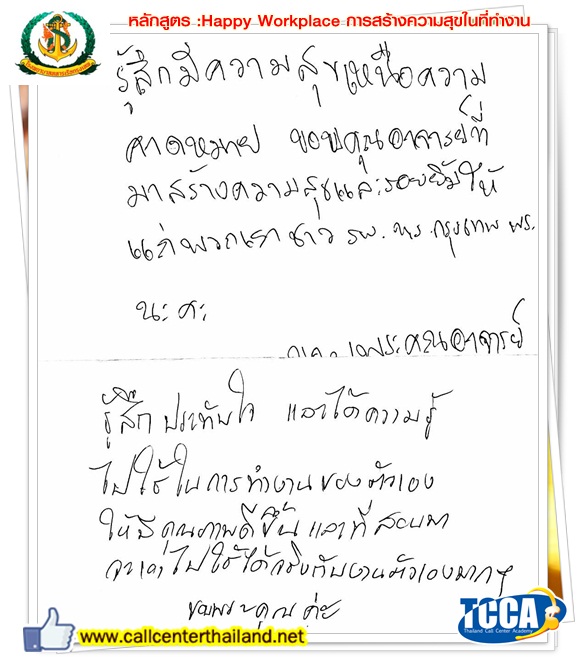 หลักสูตร :Happy Workplace การสร้างความสุขในที่ทำงาน
รู้สึกมีความสุขเหนือความ
คาดหมาย ขอบคุณอาจารย์ที่
มาสร้างความสุขและรอยยิ้มให้
แก่พวกเราชาว รพ. ทร. กรุงเทพ พร.
นะคะ
พระคุณอาจารย์
รู้สึกประทับใจ และได้ความรู้
ไปใช้ในการทำงานของตัวเอง
ให้มีคุณภาพดีขึ้น และที่สอนมา
ไปใช้ได้จริงกับงานตัวเองมากๆ
ขอบพระคุณค่ะ
TCCA
Thailand Call Center Academy
www.callcenterthailand.net